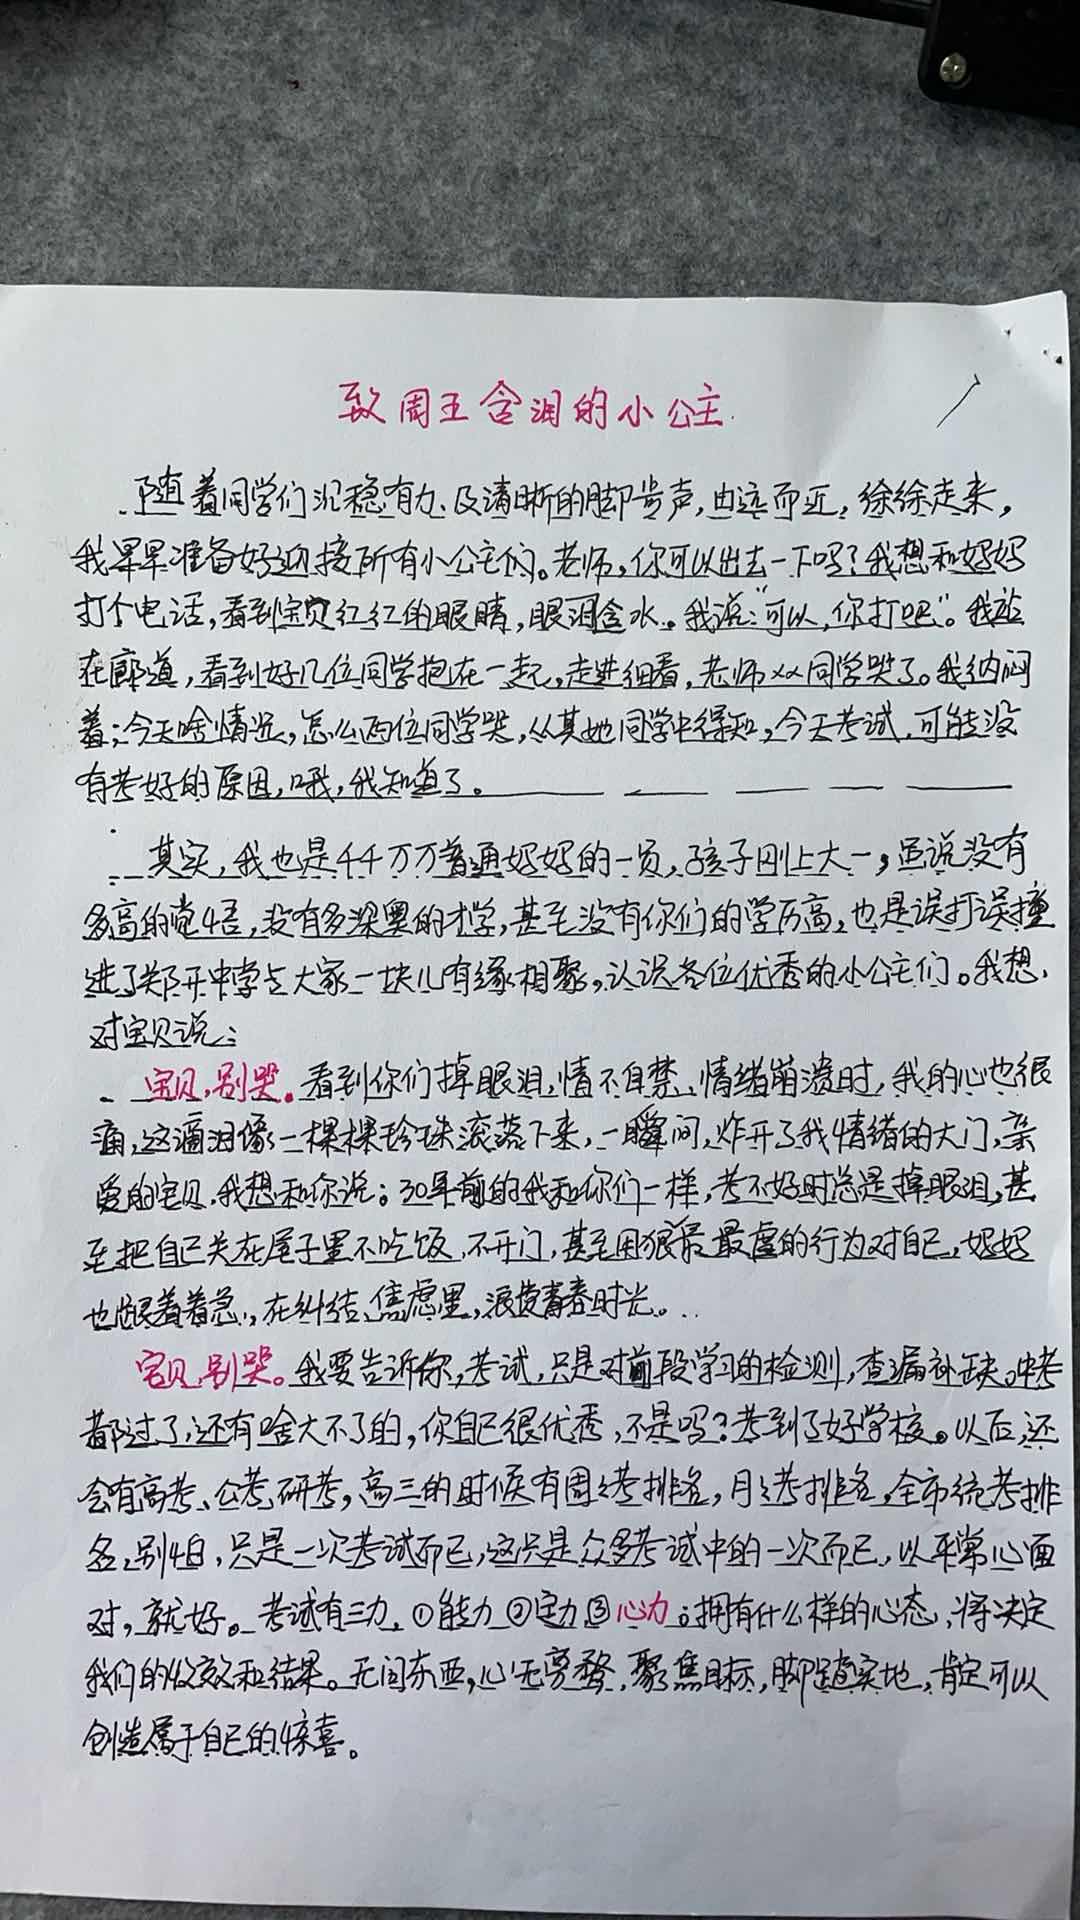 致周五含泪的小公主
随着同学们沉稳有力、及清晰的脚步声,由远而近,徐徐走来,
我早早准备好迎接所有小公主们。老师,你可以出去一下吗?我想和妈妈
打个电话,看到宝贝红红的眼睛,眼泪含水。我说:“可以,你打吧”。我站
在廊道,看到好几位同学抱在一起,走进细看,老师xx同学哭了。我纳闷
着;今天啥情况,怎么两位同学哭,从其她同学中得知,今天考试,可能没
有考好的原因,哦,我知道了。
其实,我也是千千万万普通妈妈的一员,孩子刚上大一,虽说没有
多高的觉悟,没有多深奥的才学,甚至没有你们的学历高,也是误打误撞
进了郑开中学与大家一块儿有缘相聚,认识各位优秀的小公主们。我想,
对宝贝说:
宝贝,别哭。看到你们掉眼泪,情不自禁、情绪崩溃时,我的心也很
痛,这滴泪像一棵棵珍珠滚落下来,一瞬间,炸开了我情绪的大门,亲
爱的宝贝,我想和你说:30年前的我和你们一样,考不好时总是掉眼泪,甚
至把自己关在屋子里不吃饭,不开门,甚至用狠最最虐的行为对自己,妈妈
也跟着着急,在纠结、焦虑里,浪费青春时光。
宝贝,别哭。我要告诉你,考试,只是对前段学习的检测,查漏补缺。中考
都过了,还有啥大不了的,你自己很优秀,不是吗?考到了好学校。以后,还
会有高考、公考、研考,高三的时候有周周考排名,月月考排名,全市统考排
名,别怕,只是一次考试而已,这只是众多考试中的一次而已,以平常心面
对,就好。考试有三力,①能力②定力③心力:拥有什么样的心态,将决定
我们的收效和结果。无问东西,心无旁骛,聚焦目标,脚踏实地,肯定可以
创造属于自己的惊喜。